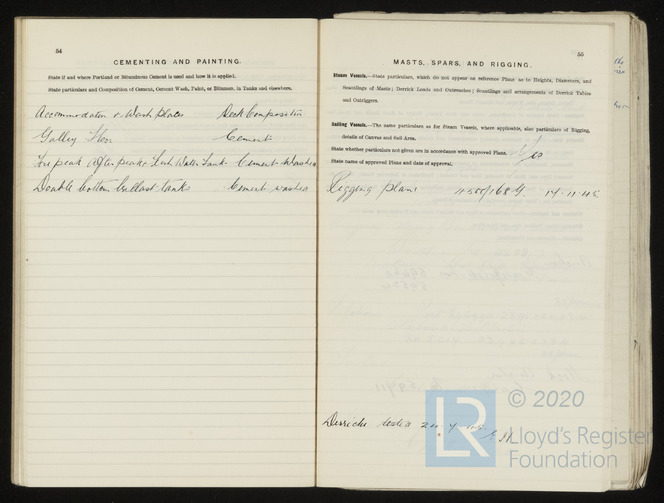 54
CEMENTING AND PAINTING.
State if and where Portland or Bituminous Cement is used and how it is applied.
State particulars and Composition of Cement, Cement Wash, Paint, or Bitumen, in Tanks and elsewhere.
Accommodation & Wash places Deck Composition
Galley floor Cement
Fore peak After peak Water Tank Cement Washed
Double bottom ballast tanks Cement washed
55
MASTS, SPARS, AND RIGGING.
Steam Vessels.—State particulars, which do not appear on reference Plans as to Heights, Diameters, and
Scantlings of Masts; Derrick Loads and Outreaches; Scantlings and arrangements of Derrick Tables
and Outriggers.
Sailing Vessels.—The same particulars as for Steam Vessels, where applicable, also particulars of Rigging,
details of Canvas and Sail Area.
State whether particulars not given are in accordance with approved Plans. Yes
State name of approved Plans and date of approval.
Rigging plan
Derricks tested
LR © 2020
Lloyd's Register
Foundation